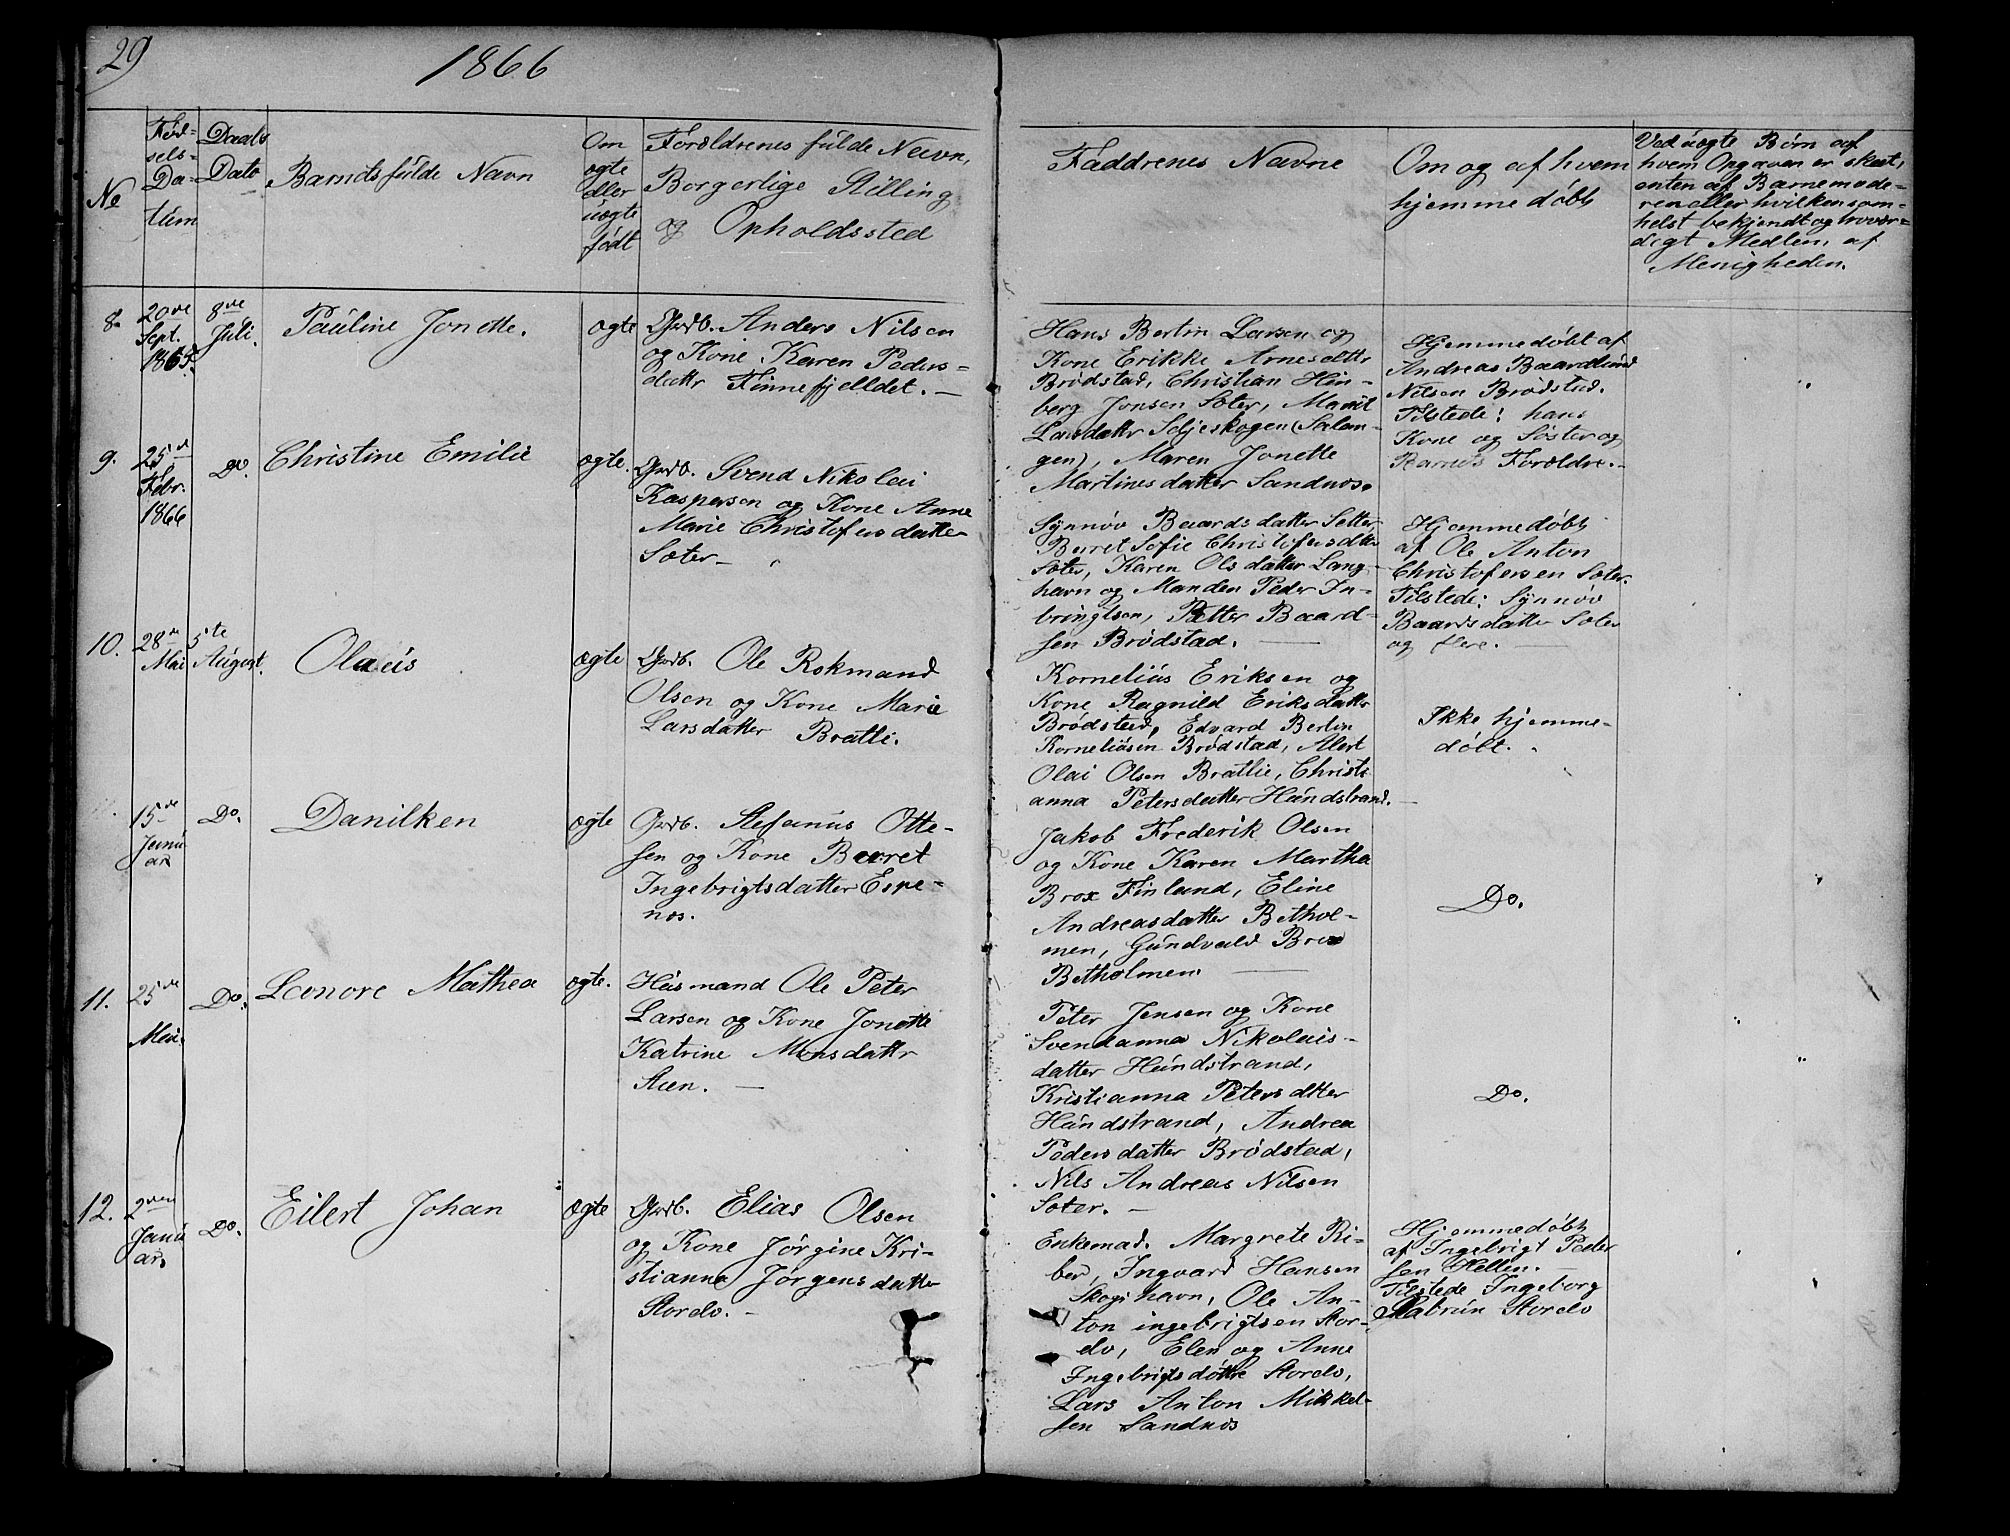 29
1866
No
Fød-
sels-
Da-
tum
Daabs
Dato
Barnets fulde Navn
Om
ægte
eller
uægte
født
Forældrenes fulde Navn,
Borgerlige Stilling
og Opholdssted
Faddrenes Navne
Om og af hvem
hjemmedøbt
Ved uægte Børn af
hvem Opgaven er skeet,
enten af Barnemode-
ren eller hvilkensom-
helst bekjendt og trovær-
digt Medlem af
Menigheden.
8.
20de
Sept.
1865.
8de
Juli.
Pauline Jonette.
ægte
Grdb. Anders Nilsen
og Kone Karen Peders-
dattr Finnefjelldet. —
Hans Bertin Larsen og
Kone Erikke Arnesdattr
Brødstad, Christian Hin-
berg Jonsen Sæter, Marit
Larsdattr Seljeskogen (Salan-
gen), Maren Jonette
Martinesdatter Sandnæs.
Hjemmedøbt af
Andreas Baardlund
Nilsen Brødstad.
Tilstede: hans
Kone og Søster og
Barnets Forældre.
9.
25de
Febr.
1866
Do.
Christine Emilie
ægte.
Grdb. Svend Nikolai
Kaspersen og Kone Anne
Marie Christofersdatter
Sæter —
Synnøv Baardsdatter Sætter,
Beret Sofie Christofersdtter
Sæter, Karen Olsdatter Lang-
havn og Manden Peder In-
bringtsen, Petter Baard-
sen Brødstad. —
Hjemmedøbt
af Ole Anton
Christofersen Sæter.
Tilstede: Synnøv
Baardsdatter Sæter
og flere. —
10.
28de
Mai
5te
August.
Olaus
ægte
Grdb. Ole Rokmand
Olsen og Kone Marie
Larsdatter Bratli.
Kornelius Eriksen og
Kone Ragnild Eriksdattr
Brødstad, Edvard Bertin
Korneliusen Brødstad, Alert
Olai Olsen Bratlie, Christi
anna Petersdatter Hundstrand. —
Ikke hjemme-
døbt.
15de
Janu
ar
Do.
Danilken
ægte
Grdb. Stefanus Otte-
sen og Kone Beret
Ingebrigtsdatter Espe-
næs.
Jakob Frederik Olsen
og Kone Karen Martha
Brox Finland, Eline
Andreasdatter Bethol-
men, Gundvald Brox
Betholmen —
Do.
11.
25de
Mai.
Do.
Leonore Mathea
ægte.
Husmand Ole Peter
Larsen og Kone Jonette
Katrine Monsdattr
Steen. —
Peter Jensen og Kone
Svendanna Nikolais-
datter Hundstrand,
Kristianna Petersdtter
Hundstrand, Andrea
Pedersdatter Brødstad,
Nils Andreas Nilsen
Sæter. —
Do.
12.
2den
Janu
ar
Do.
Eilert Johan
ægte
Grdb. Elias Olsen
og Kone Jørgine Kri-
stianna Jørgensdatter
Stordø. —
Enkemad. Margrete Ri-
ber, Ingvard Hansen
Skogshavn, Ole An-
ton ingebrigtsen Stor-
dø, Elen og Anne
Ingebrigtsdøttre Stordø,
Lars Anton Mikkel-
sen Sandnæs
Hjemmedøbt
af Ingebrigt Peder
sen Hellen. —
Tilstede Ingeborg
Katrin Stordø